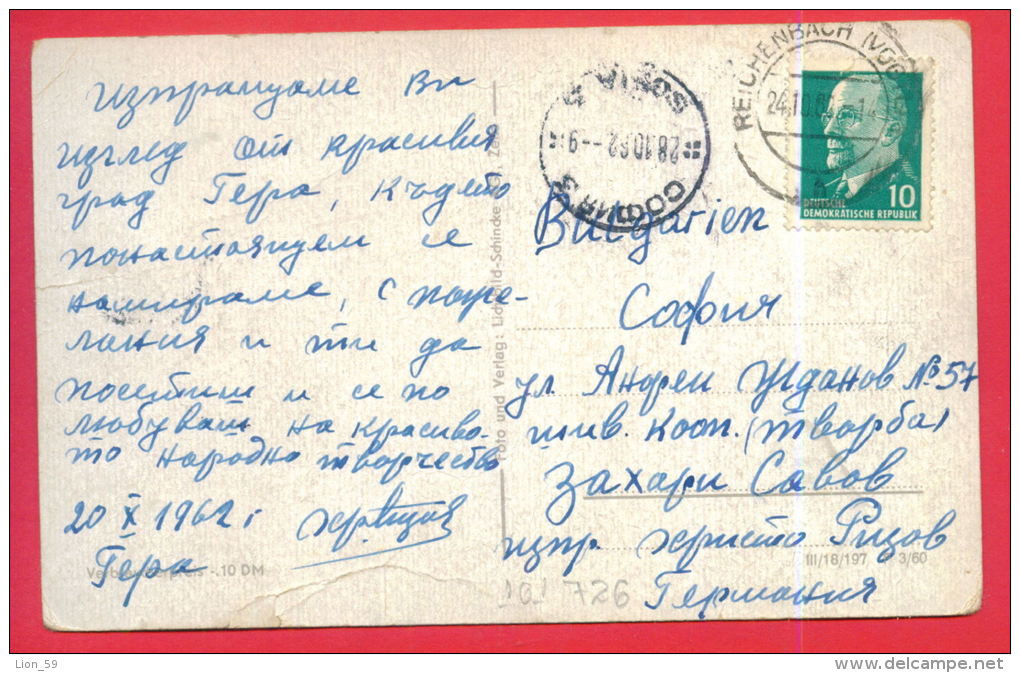 Изпращаме Ви
изглед от красивия
град Гера, където
понастоящем се
намираме, с поже-
лания и ти да
посетиш и се по
любуваш на красиво-
то народно творчество
20 X 1962 г
Гера
Bulgarien
София
ул. Андреи Жданов №57
шив. кооп. (творба)
Захари Савов
изпр. христо Ризов
Германия
REICHENBACH (VOG
24.10.62
SOFIA
28.10.62 -- 9
СОФИЯ
10
DEUTSCHE
DEMOKRATISCHE REPUBLIK
Foto und Verlag: Lichtbild-Schincke
Verbraucherpreis -.10 DM
III/18/197
3/60
101 726
Lion_59
www.delcampe.net